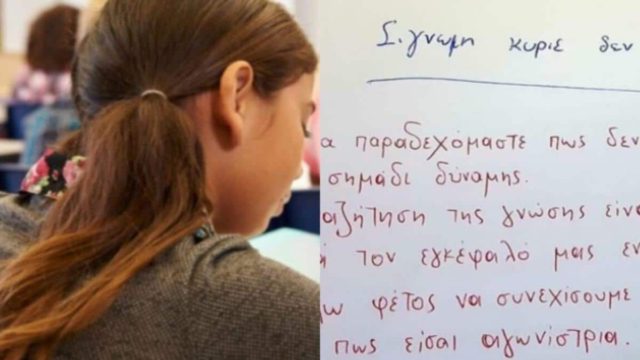 Σ.γνωμη κυριε δεν
α παραδεχόμαστε πως δεν
σημάδι δύναμης.
αζήτηση της γνώσης είνα
τον εγκέφαλό μας εν
ω φέτος να συνεχίσουμε
πως είσαι αγωνίστρια.